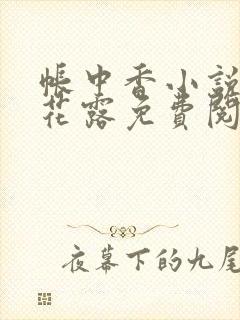 帐中香小説
花露免費閱
夜幕下的九尾